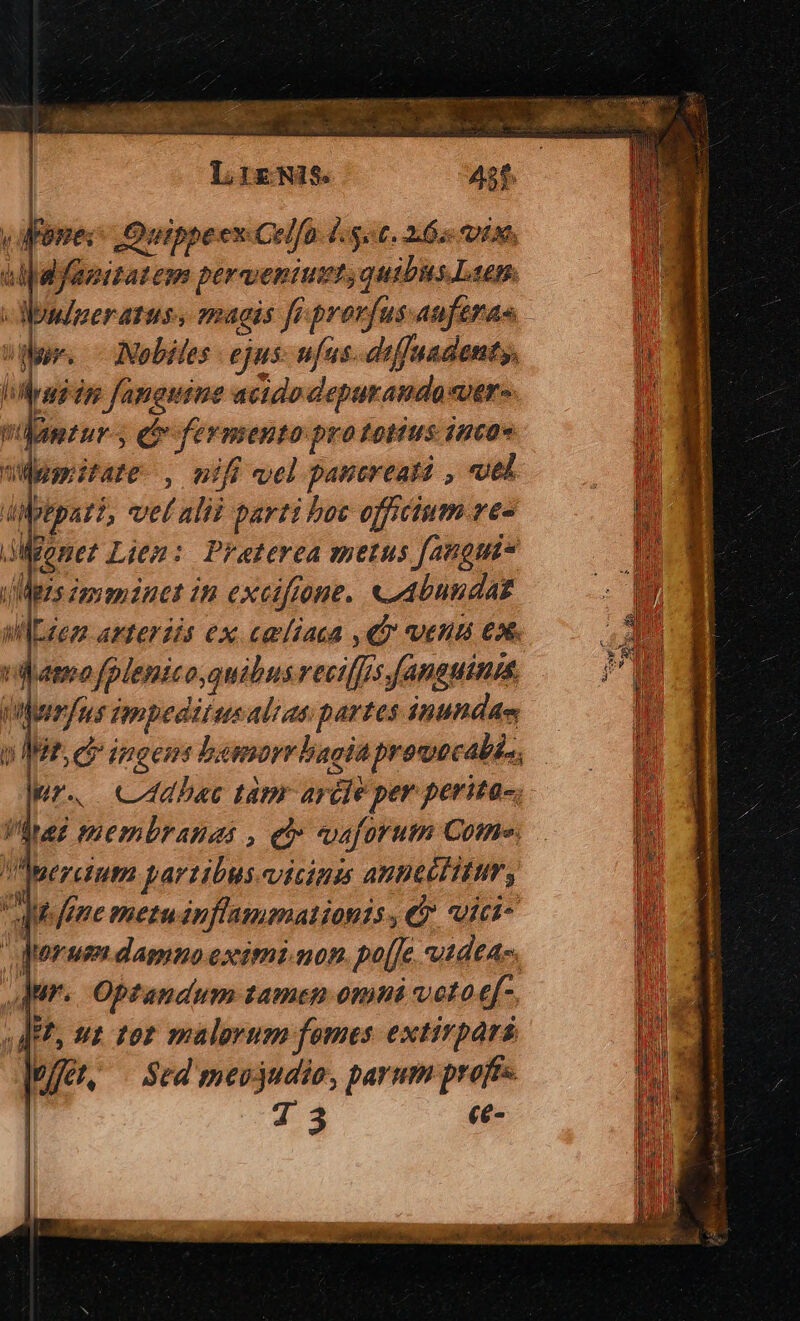 LIENIS. 435
one. Quippe ex Celso l. 5. c. 26. vix
ad sanitatem perveniunt, quibus Lien
vulneratus, magis si prorsus aufera-
tur. Nobiles ejus usus dissuadent,
qui in sanguine acido depurando ver-
santur, & fermento pro totius inco-
lumitate, nisi vel pancreati, vel
hepati, vel alii parti hoc officium re-
signet Lien: Praterea metus sangui-
nis imminet in excisione. Abundat
Lien arteriis ex cœliaca, & venis ex
ramo splenico, quibus recissis, sanguinis
cursus impeditus alias partes inunda-
bit, & ingens hæmorrhagia provocabi-
tur. Adhæc tàm arctè per perito-
næi membranas, & vasorum Com-
mercium partibus vicinis annectitur,
ut sine metu inflammationis, & vici-
norum damno eximi non posse videa-
tur. Optandum tamen omni voto es-
set, ut tot malorum fomes extirpari
posset, Sed meo judio, parum profi-
T 3 ce-